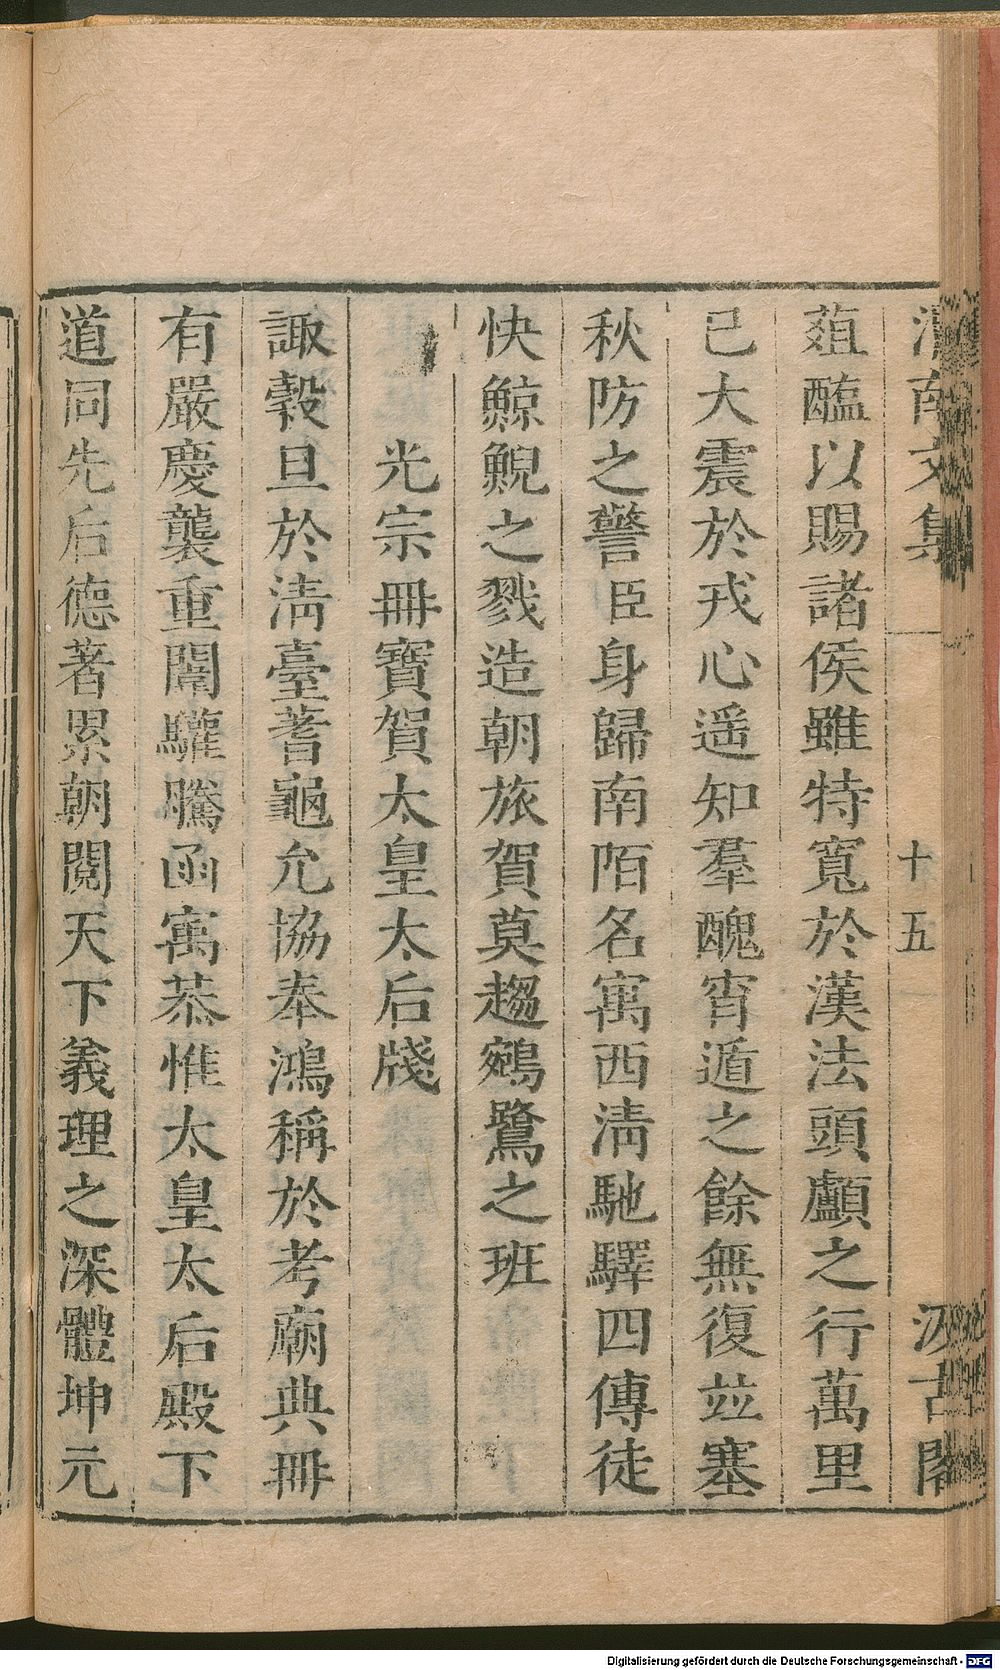 渭南文集 十五 汲古閣
葅醢以賜諸侯雖特寬於漢法頭顱之行萬里
已大震於戎心遥知羣醜宵遁之餘無復並塞
秋防之警臣身歸南陌名寓西淸馳驛四傳徒
快鯨鯢之戮造朝旅賀莫趨鵷鷺之班
光宗冊寶賀太皇太后牋
諏糓旦於淸臺蓍龜允協奉鴻稱於考廟典冊
有嚴慶襲重闈驩騰函寓恭惟太皇太后殿下
道同先后德著累朝閱天下義理之深體坤元
Digitalisierung gefördert durch die Deutsche Forschungsgemeinschaft - DFG